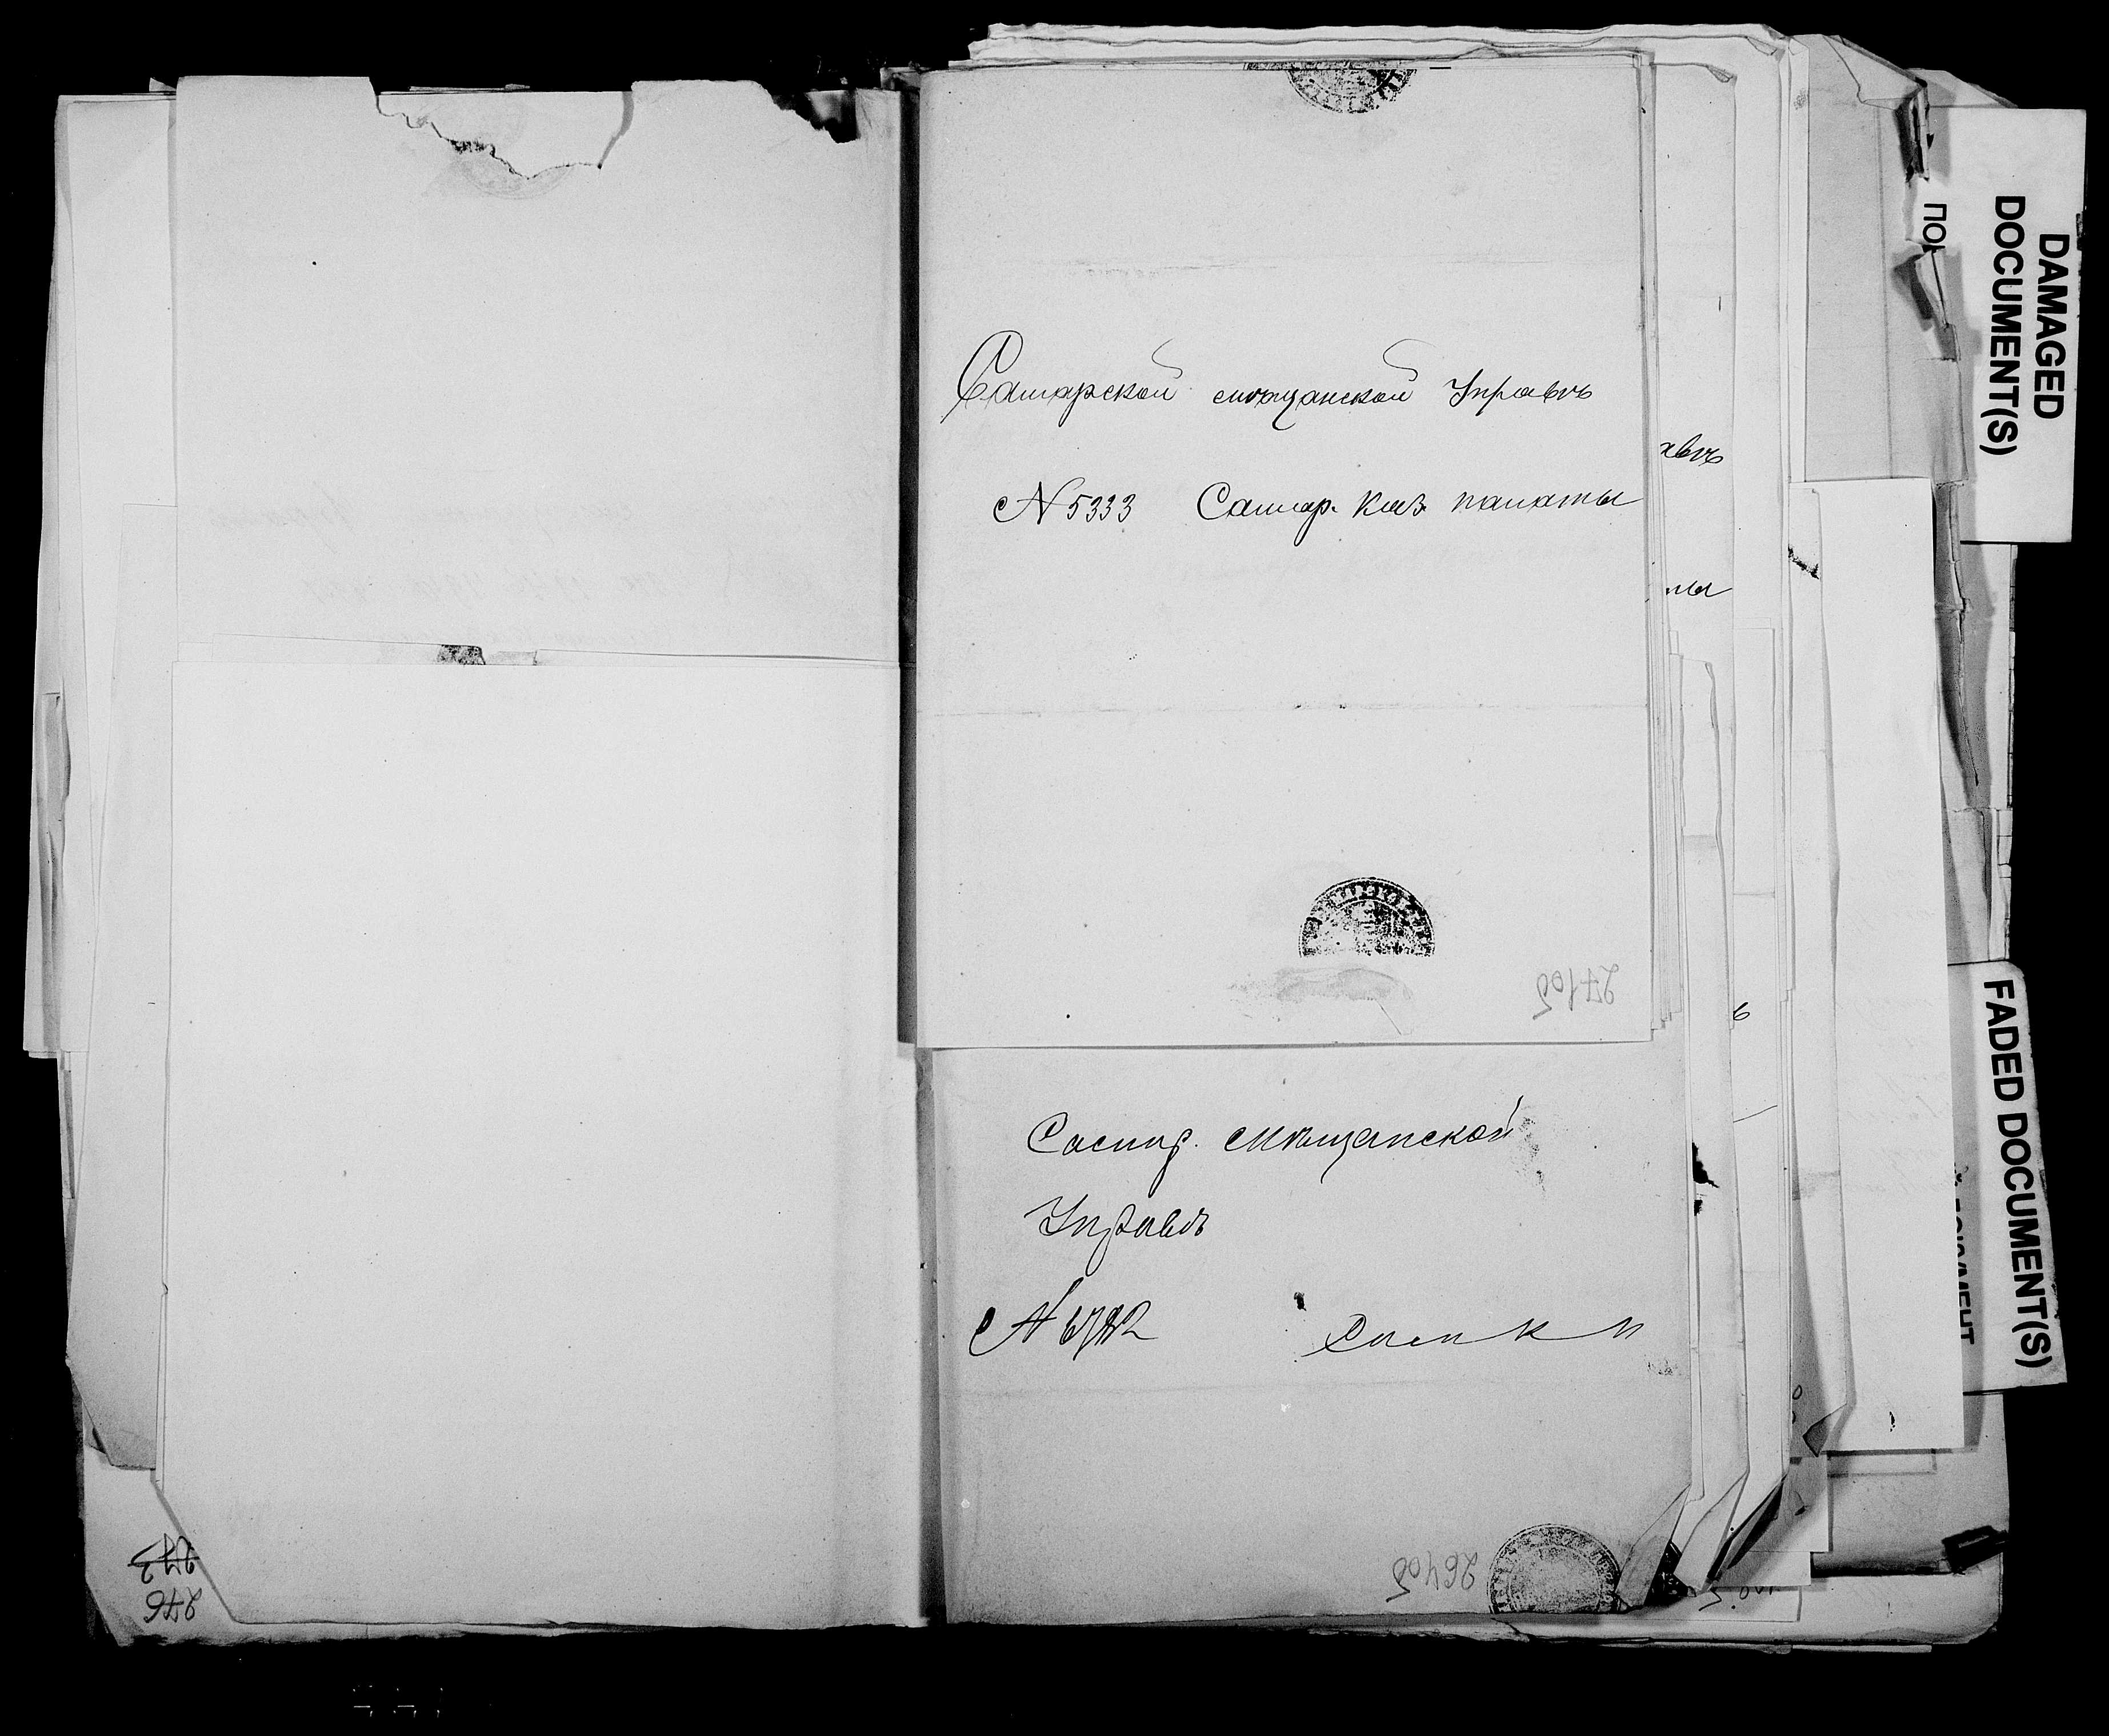 Самарской мѣщанской Управѣ
№ 5333 Самар. Каз. палаты
авѣ
ты
27 об
Самар. мѣщанской
Управѣ
№
26 об
273
276
DAMAGED
DOCUMENT(S)
ПО
FADED DOCUMENT(S)